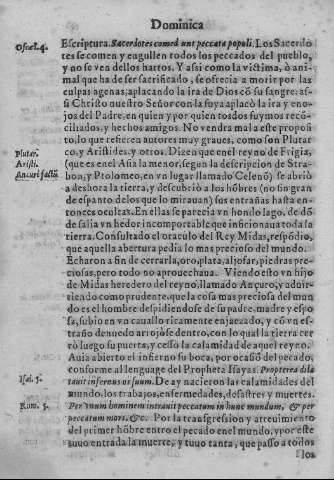 Dominica
Oseæ.4.
Escriptura. Sacerdotes comed unt peccata populi. Los Sacerdo
tes se comen y engullen todos los pecados del pueblo,
y no se ven dellos hartos. Y assi como la victima, ò ani-
mal que ha de ser sacrificado, se ofrecia a morir por las
culpas agenas, aplacando la ira de Dios cõ su sangre: as-
si Christo nuestro Señor con la suya aplacò la ira y eno-
jos del Padre, en quien y por quien todos fuymos reco̅-
ciliados, y hechos amigos. No vendra mal a este proposi
to, lo que refieren autores muy graues, como son Plutar
Plutar.
co, y Aristides, y otros. Dizen que en el reyno de Frigia,
Aristi.
(que es en el Asia la menor, segun la descripcion de Stra-
Ancuri factũ
bon, y Ptolomeo, en vn lugar llamado Celenõ) se abriò
a deshora la tierra, y descubriò a los hõbres (no sin gran
de espanto de los que lo mirauan) sus entrañas hasta en-
tonces ocultas. En ellas se parecia vn hondo lago, de dõ
de salia vn hedor incomportable que inficionaua toda la
tierra. Consultado el oraculo del Rey Midas, respõdio,
que aquella abertura pedia lo mas precioso del mundo.
Echaron a fin de cerrarla, oro, plata, aljofar, piedras pre-
ciosas, pero todo no aprouechaua. Viendo esto vn hijo
de Midas heredero del reyno, llamado Ançuro, y aduir-
tiendo como prudente, que la cosa mas preciosa del mun
do es el hombre, despidiendose de su padre, madre y espo
sa, subio en vn cauallo ricamente enjaezado, y cõ vn es-
traño denuedo arrojòse dentro, con lo qual la tierra cer
rò luego su puerta, y cessò la calamidad de aquel reyno.
Auia abierto el infierno su boca, por ocasiõ del pecado,
conforme al lenguage del Propheta Isayas. Propterea dila
Isai. 5.
tauit infernus os suum. De ay nacieron las calamidades del
mundo, los trabajos, enfermedades, desastres y muertes.
Rom. 5.
Per vnum hominem intrauit peccatum in hunc mundum, & per
peccatum mors, &c. Por la transgression y atreuimiento
del primer hõbre entro el pecado en el mundo, y por este
suyo entrada la muerte, y tuuo tanta, que passò a todos
los